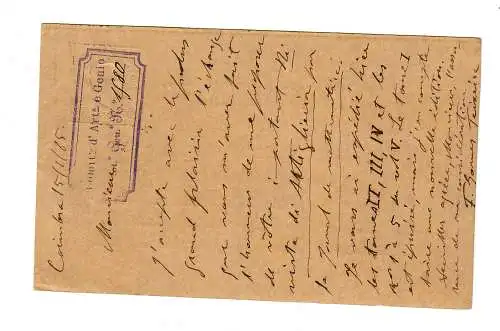 Coimbra 15/11/85
d'Art. e Genio
N° 1582
Monsieur
J'accepte avec le plus
grand plaisir l'échange
que vous m'avez fait
l'honneur de me proposer
de votre important Ri
vista di Artiglieria par
le Jornal de mathematica.
Je vous ai expédié hier
les tomes II, III, IV et les
nos 1 à 5 du vol V. Le tome I
est épuisé, mais j'en compte
faire une nouvelle édition.
agréer, Monsieur, l'assu
rance de ma considération
F. Gomes Teixeira